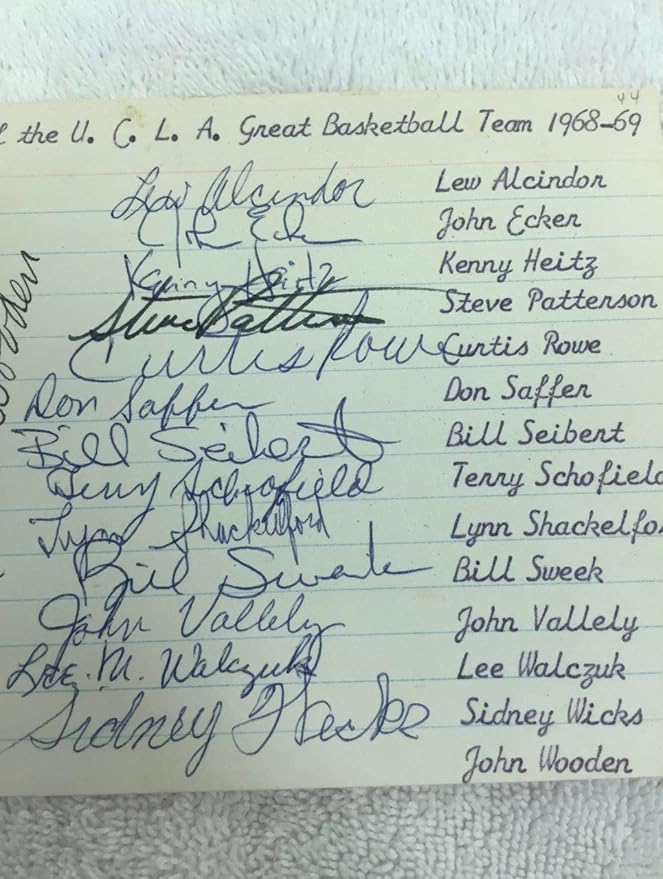 44
the U. C. L. A. Great Basketball Team 1968-69
Lew Alcindor Lew Alcindor
John Ecker
Kenny Heitz Kenny Heitz
Steve Patterson Steve Patterson
Curtis Rowe Curtis Rowe
Don Saffer Don Saffer
Bill Seibert Bill Seibert
Terry Schofield Terry Schofield
Lynn Shackelford Lynn Shackelfo
Bill Sweek Bill Sweek
John Vallely John Vallely
Lee M. Walczuk Lee Walczuk
Sidney Wicks Sidney Wicks
John Wooden
ooden